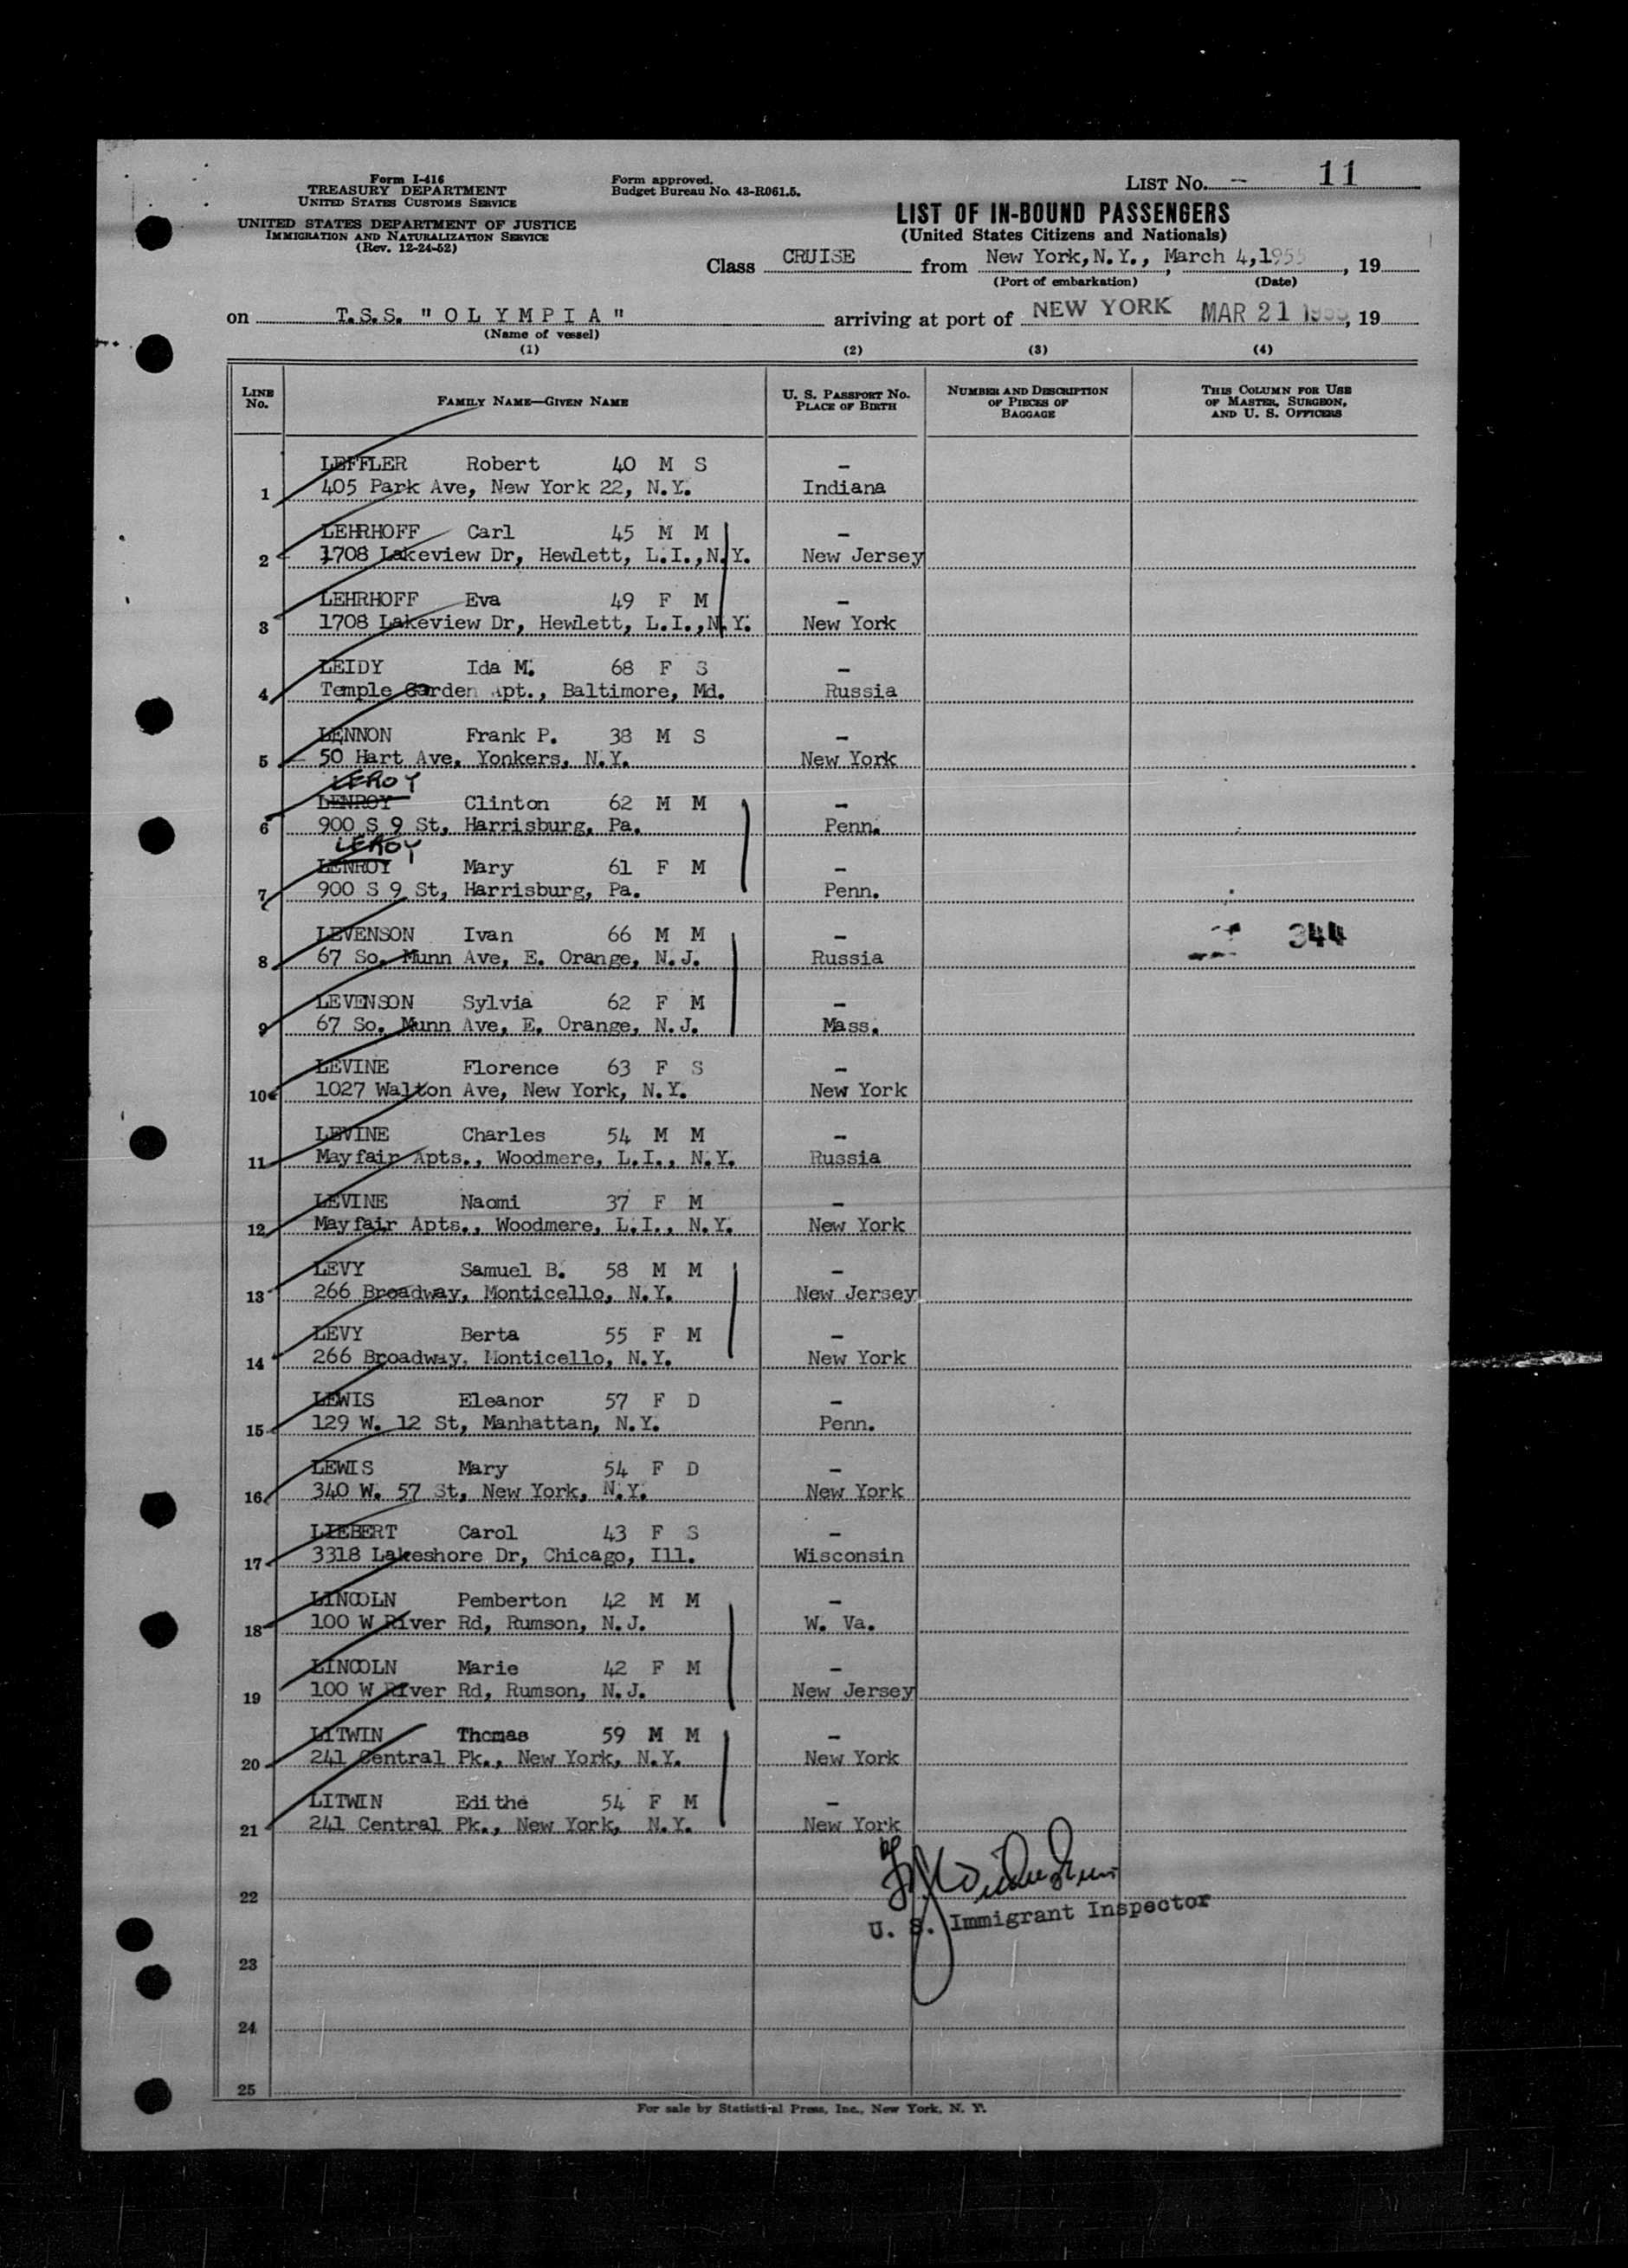 Form I-416
TREASURY DEPARTMENT
UNITED STATES CUSTOMS SERVICE
UNITED STATES DEPARTMENT OF JUSTICE
IMMIGRATION AND NATURALIZATION SERVICE
(Rev. 12-24-52)
Form approved.
Budget Bureau No. 43-R061.5.
LIST No. - 11
LIST OF IN-BOUND PASSENGERS
(United States Citizens and Nationals)
Class CRUISE from New York, N.Y., March 4, 1955, 19
(Port of embarkation) (Date)
on T.S.S. "OLYMPIA" arriving at port of NEW YORK MAR 21 1955, 19
(Name of vessel)
(1) (2) (3) (4)
LINE No. FAMILY NAME—GIVEN NAME U. S. PASSPORT No. PLACE OF BIRTH NUMBER AND DESCRIPTION OF PIECES OF BAGGAGE THIS COLUMN FOR USE OF MASTER, SURGEON, AND U. S. OFFICERS
LEFFLER Robert 40 M S -
1 405 Park Ave, New York 22, N.Y. Indiana
LEHRHOFF Carl 45 M M -
2 1708 Lakeview Dr, Hewlett, L.I., N.Y. New Jersey
LEHRHOFF Eva 49 F M -
3 1708 Lakeview Dr, Hewlett, L.I., N.Y. New York
LEIDY Ida M. 68 F S -
4 Temple Garden Apt., Baltimore, Md. Russia
LENNON Frank P. 38 M S -
5 50 Hart Ave, Yonkers, N.Y. New York
LEROY
LENROY Clinton 62 M M -
6 900 S 9 St, Harrisburg, Pa. Penn.
LEROY
LENROY Mary 61 F M -
7 900 S 9 St, Harrisburg, Pa. Penn.
LEVENSON Ivan 66 M M - 344
8 67 So. Munn Ave, E. Orange, N.J. Russia
LEVENSON Sylvia 62 F M -
9 67 So. Munn Ave, E. Orange, N.J. Mass.
LEVINE Florence 63 F S -
10 1027 Walton Ave, New York, N.Y. New York
LEVINE Charles 54 M M -
11 Mayfair Apts., Woodmere, L.I., N.Y. Russia
LEVINE Naomi 37 F M -
12 Mayfair Apts., Woodmere, L.I., N.Y. New York
LEVY Samuel B. 58 M M -
13 266 Broadway, Monticello, N.Y. New Jersey
LEVY Berta 55 F M -
14 266 Broadway, Monticello, N.Y. New York
LEWIS Eleanor 57 F D -
15 129 W. 12 St, Manhattan, N.Y. Penn.
LEWIS Mary 54 F D -
16 340 W. 57 St, New York, N.Y. New York
LIEBERT Carol 43 F S -
17 3318 Lakeshore Dr, Chicago, Ill. Wisconsin
LINCOLN Pemberton 42 M M -
18 100 W River Rd, Rumson, N.J. W. Va.
LINCOLN Marie 42 F M -
19 100 W River Rd, Rumson, N.J. New Jersey
LITWIN Thomas 59 M M -
20 241 Central Pk., New York, N.Y. New York
LITWIN Edithe 54 F M -
21 241 Central Pk., New York, N.Y. New York
22
U. S. Immigrant Inspector
23
24
25
For sale by Statistical Press, Inc., New York, N. Y.